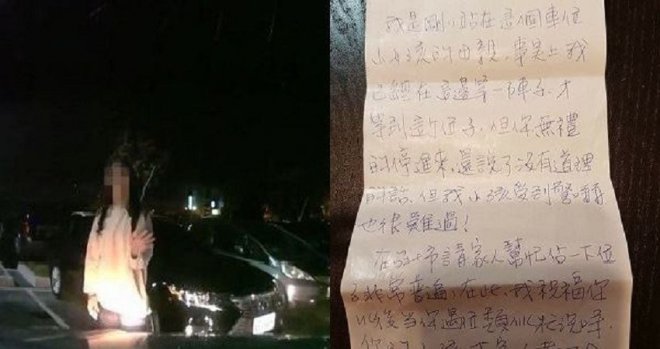 我是剛剛站在這個車位
小孩的母親,事實上我
已經在這邊等一陣子,才
等到這位子,但你無禮
的停進來,還說了沒有道理
的話,但我小孩受到驚嚇
也很難過!
在 市請家人幫忙佔一下位
非常普遍,在此,我祝福你
以後當你遇 類似 時